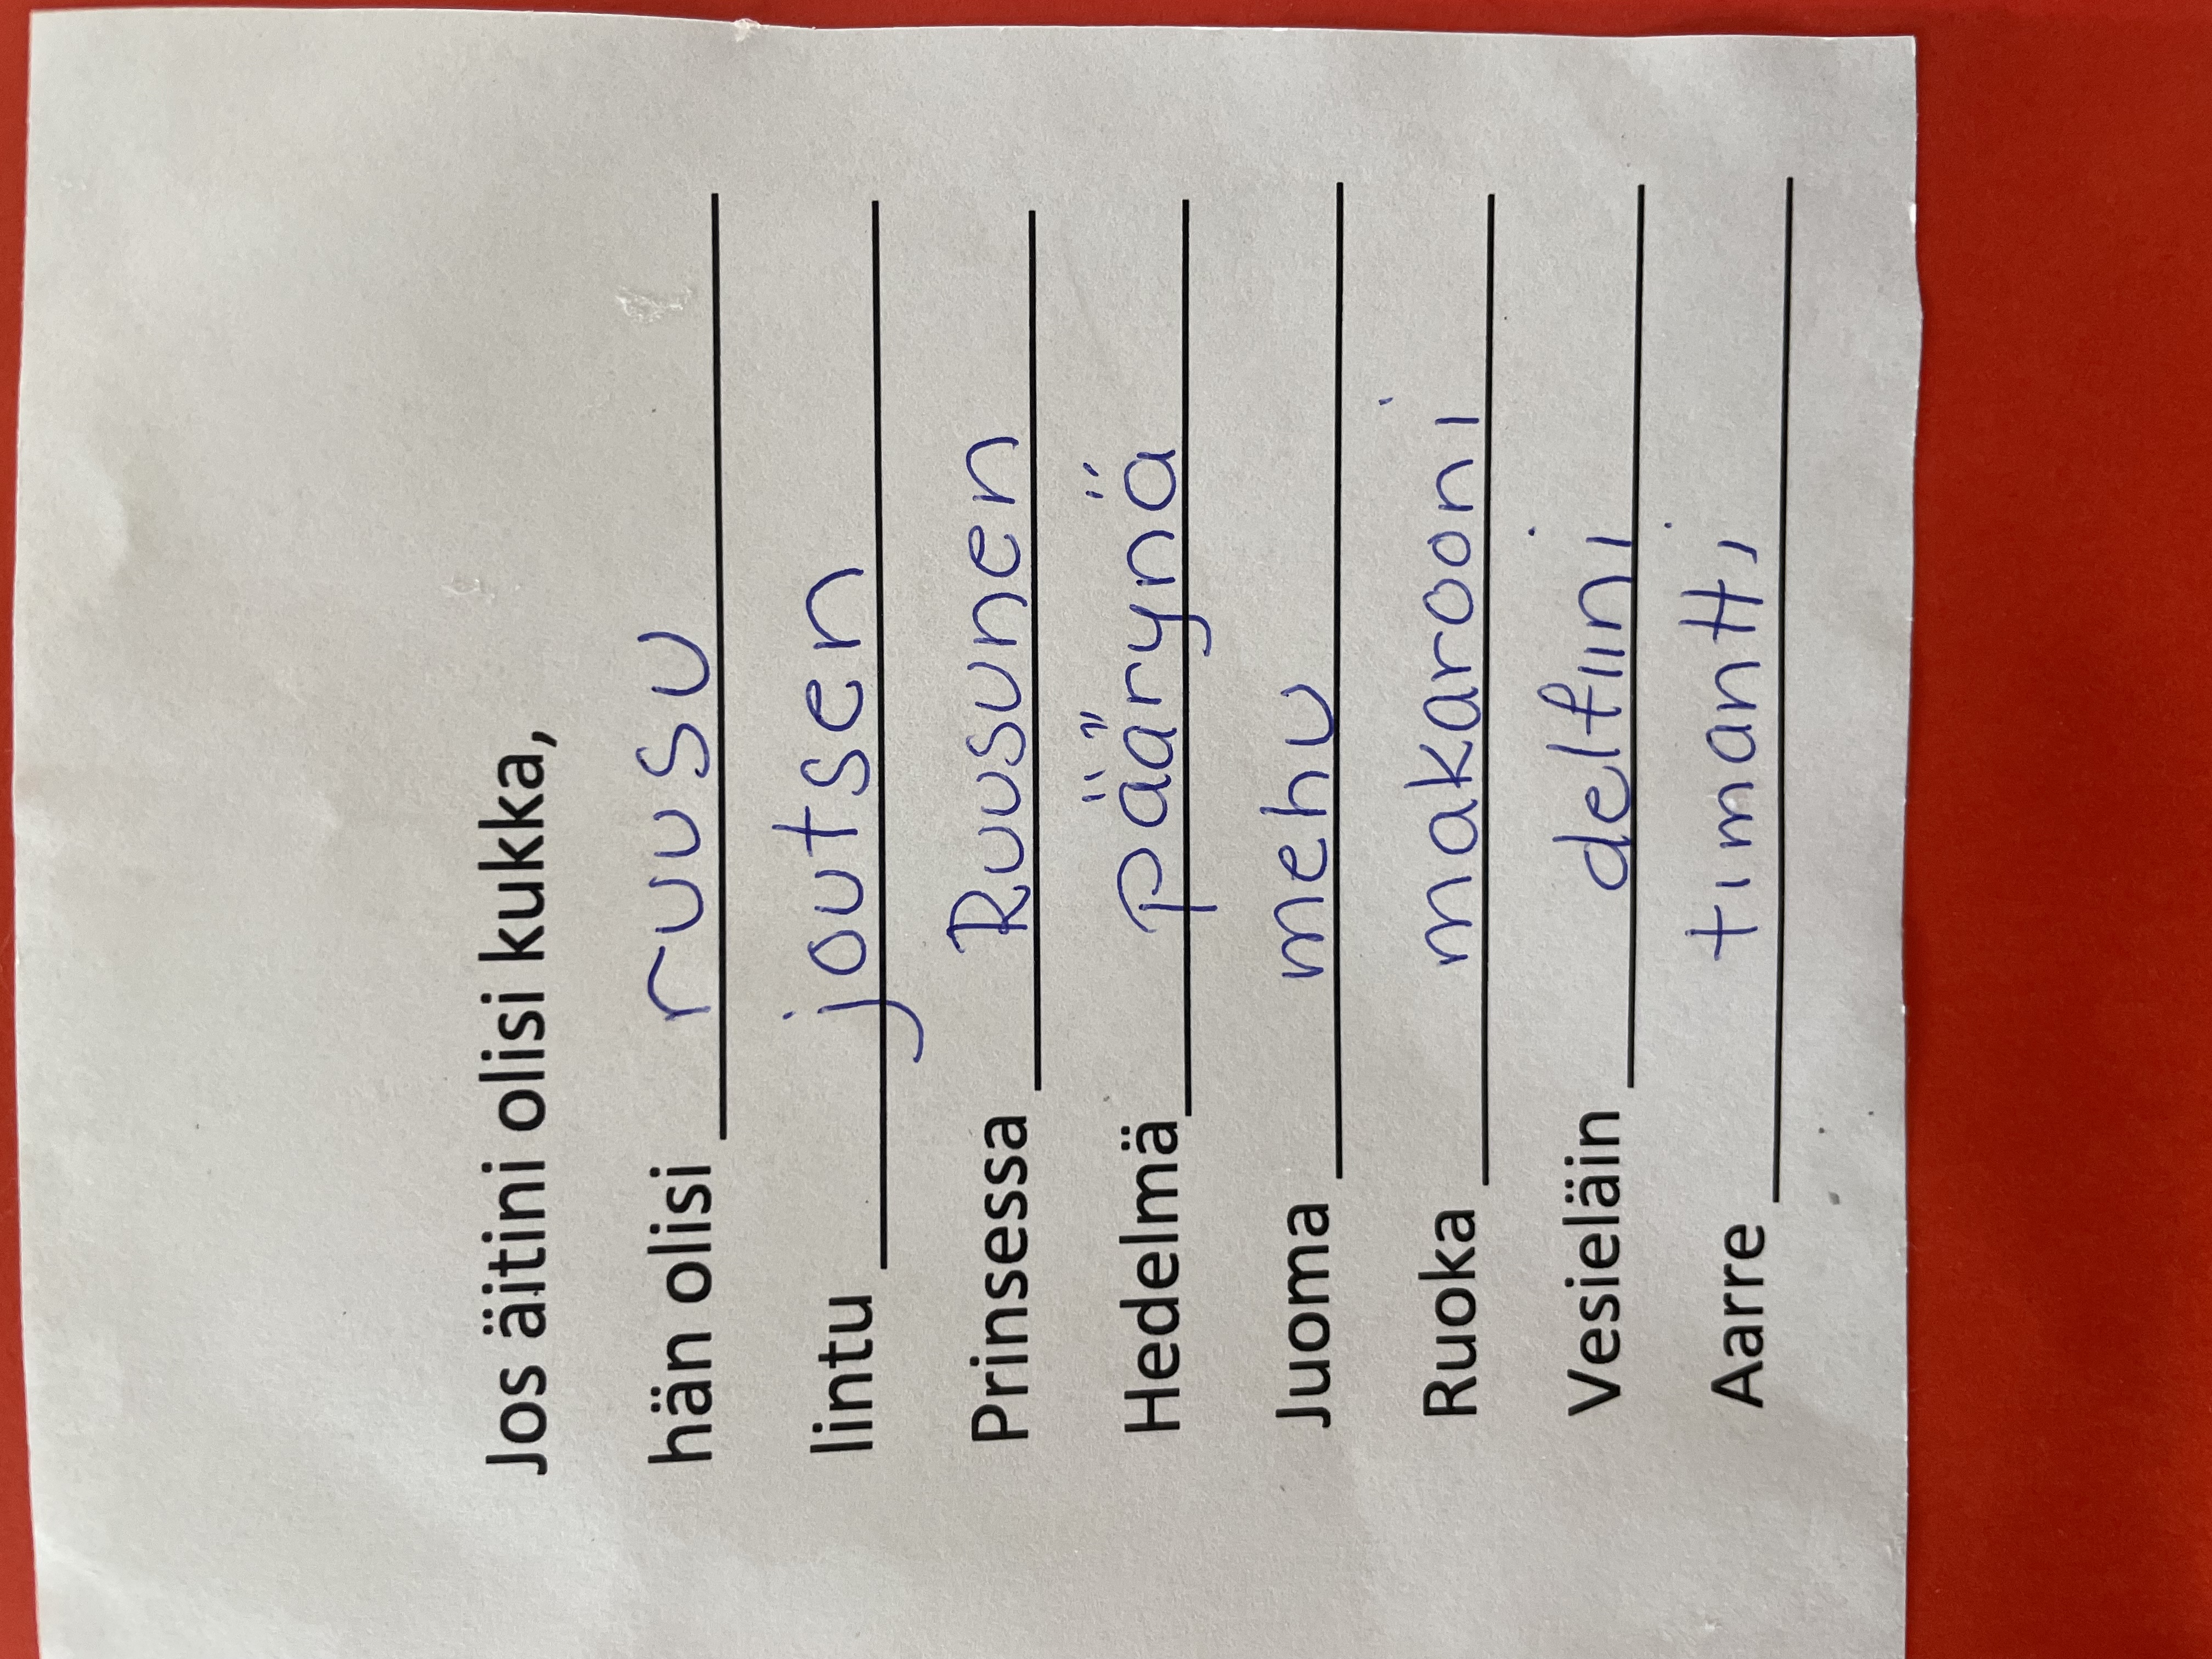 Jos äitini olisi kukka,
hän olisi ruusu
lintu joutsen
Prinsessa Ruusunen
Hedelmä päärynä
Juoma mehu
Ruoka makarooni
Vesieläin delfiini
Aarre timantti